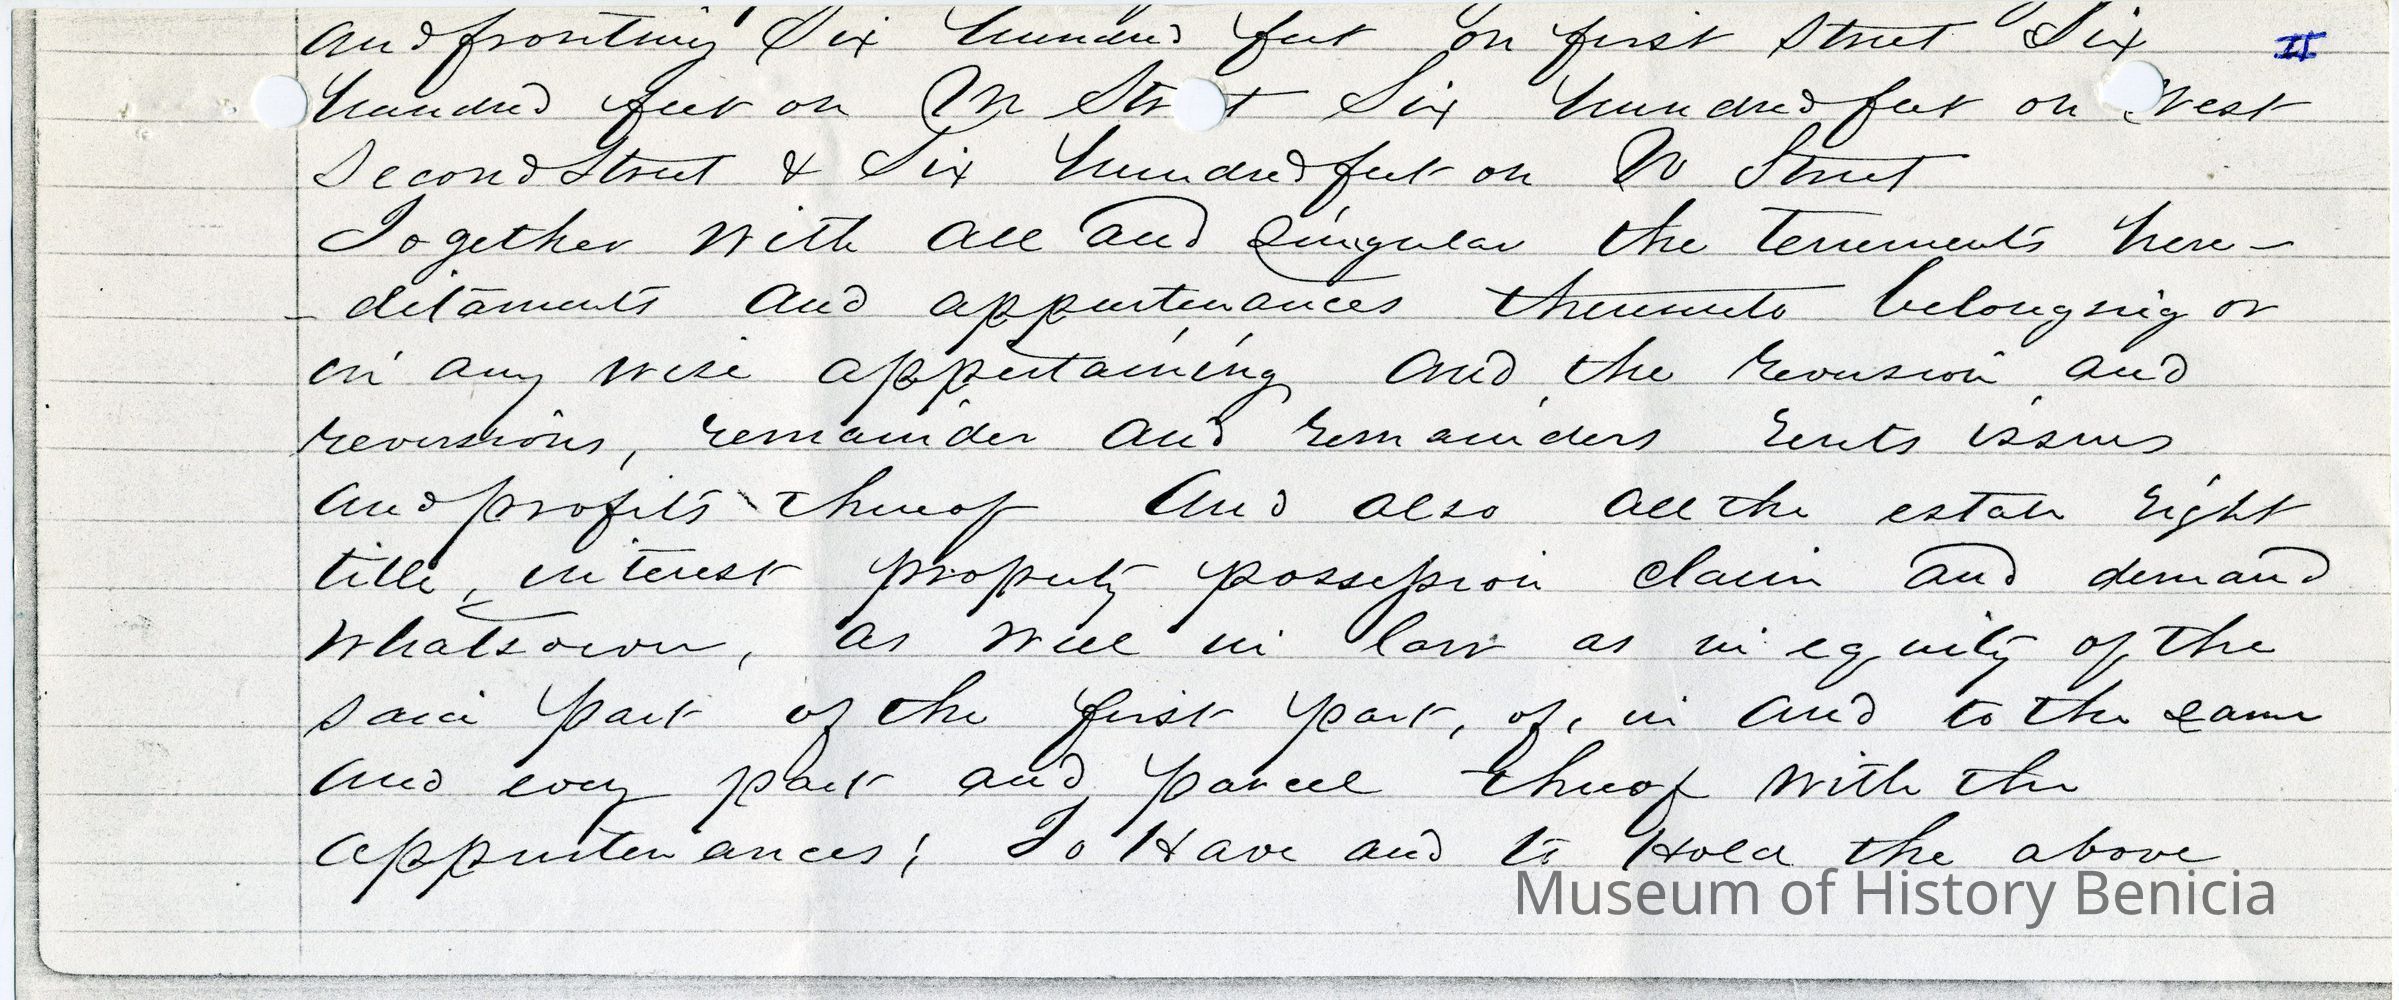 and fronting Six hundred feet on first Street Six
II
hundred feet on M Street Six hundred feet on West
Second Street & Six hundred feet on N Street
Together with all and singular the tenements here-
-ditaments and appurtenances thereunto belonging or
in any wise appertaining and the reversion and
reversions, remainder and remainders rents issues
and profits thereof And also all the estate right
title, interest property possession claim and demand
whatsoever, as well in law as in equity of the
said part of the first part, of, in and to the same
and every part and parcel thereof with the
appurtenances; To Have and to Hold the above
Museum of History Benicia